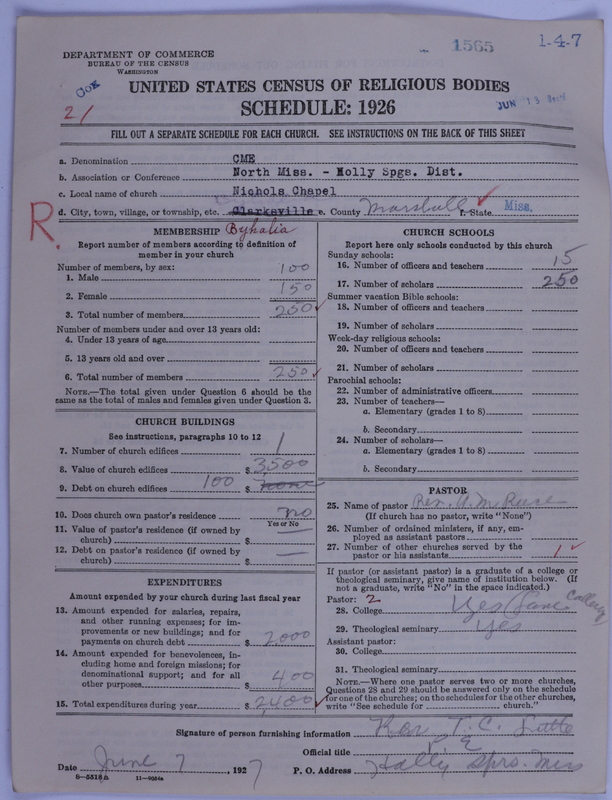 DEPARTMENT OF COMMERCE
BUREAU OF THE CENSUS
WASHINGTON
1565
1-4-7
21
UNITED STATES CENSUS OF RELIGIOUS BODIES
SCHEDULE: 1926
JUN 13
FILL OUT A SEPARATE SCHEDULE FOR EACH CHURCH. SEE INSTRUCTIONS ON THE BACK OF THIS SHEET
a. Denomination CME
b. Association or Conference North Miss. - Holly Spgs. Dist.
c. Local name of church Nichols Chapel
d. City, town, village, or township, etc. Clarksville e. County Marshall f. State Miss.
R.
MEMBERSHIP Byhalia
Report number of members according to definition of member in your church
Number of members, by sex:
1. Male 100
2. Female 150
3. Total number of members 250
Number of members under and over 13 years old:
4. Under 13 years of age
5. 13 years old and over
6. Total number of members 250
NOTE.—The total given under Question 6 should be the same as the total of males and females given under Question 3.
CHURCH BUILDINGS
See instructions, paragraphs 10 to 12
7. Number of church edifices 1
8. Value of church edifices $ 3,500
9. Debt on church edifices 100 $ none
10. Does church own pastor's residence? no
Yes or No
11. Value of pastor's residence (if owned by church) $ —
12. Debt on pastor's residence (if owned by church) $ —
EXPENDITURES
Amount expended by your church during last fiscal year
13. Amount expended for salaries, repairs, and other running expenses; for improvements or new buildings; and for payments on church debt $ 2000
14. Amount expended for benevolences, including home and foreign missions; for denominational support; and for all other purposes $ 400
15. Total expenditures during year $ 2400
CHURCH SCHOOLS
Report here only schools conducted by this church
Sunday schools:
16. Number of officers and teachers 15
17. Number of scholars 250
Summer vacation Bible schools:
18. Number of officers and teachers
19. Number of scholars
Week-day religious schools:
20. Number of officers and teachers
21. Number of scholars
Parochial schools:
22. Number of administrative officers
23. Number of teachers—
a. Elementary (grades 1 to 8)
b. Secondary
24. Number of scholars—
a. Elementary (grades 1 to 8)
b. Secondary
PASTOR
25. Name of pastor Rev. A. M. Reese
(If church has no pastor, write "None")
26. Number of ordained ministers, if any, employed as assistant pastors
27. Number of other churches served by the pastor or his assistants 1
If pastor (or assistant pastor) is a graduate of a college or theological seminary, give name of institution below. (If not a graduate, write "No" in the space indicated.)
Pastor: 2
28. College Yes Lane College
29. Theological seminary Yes
Assistant pastor:
30. College
31. Theological seminary
NOTE.—Where one pastor serves two or more churches, Questions 28 and 29 should be answered only on the schedule for one of the churches; on the schedules for the other churches, write "See schedule for church."
Signature of person furnishing information Rev. T. C.
Official title P. E
Date June 7, 1927 P. O. Address Holly Spgs. Miss
8—5518a 11—9054a